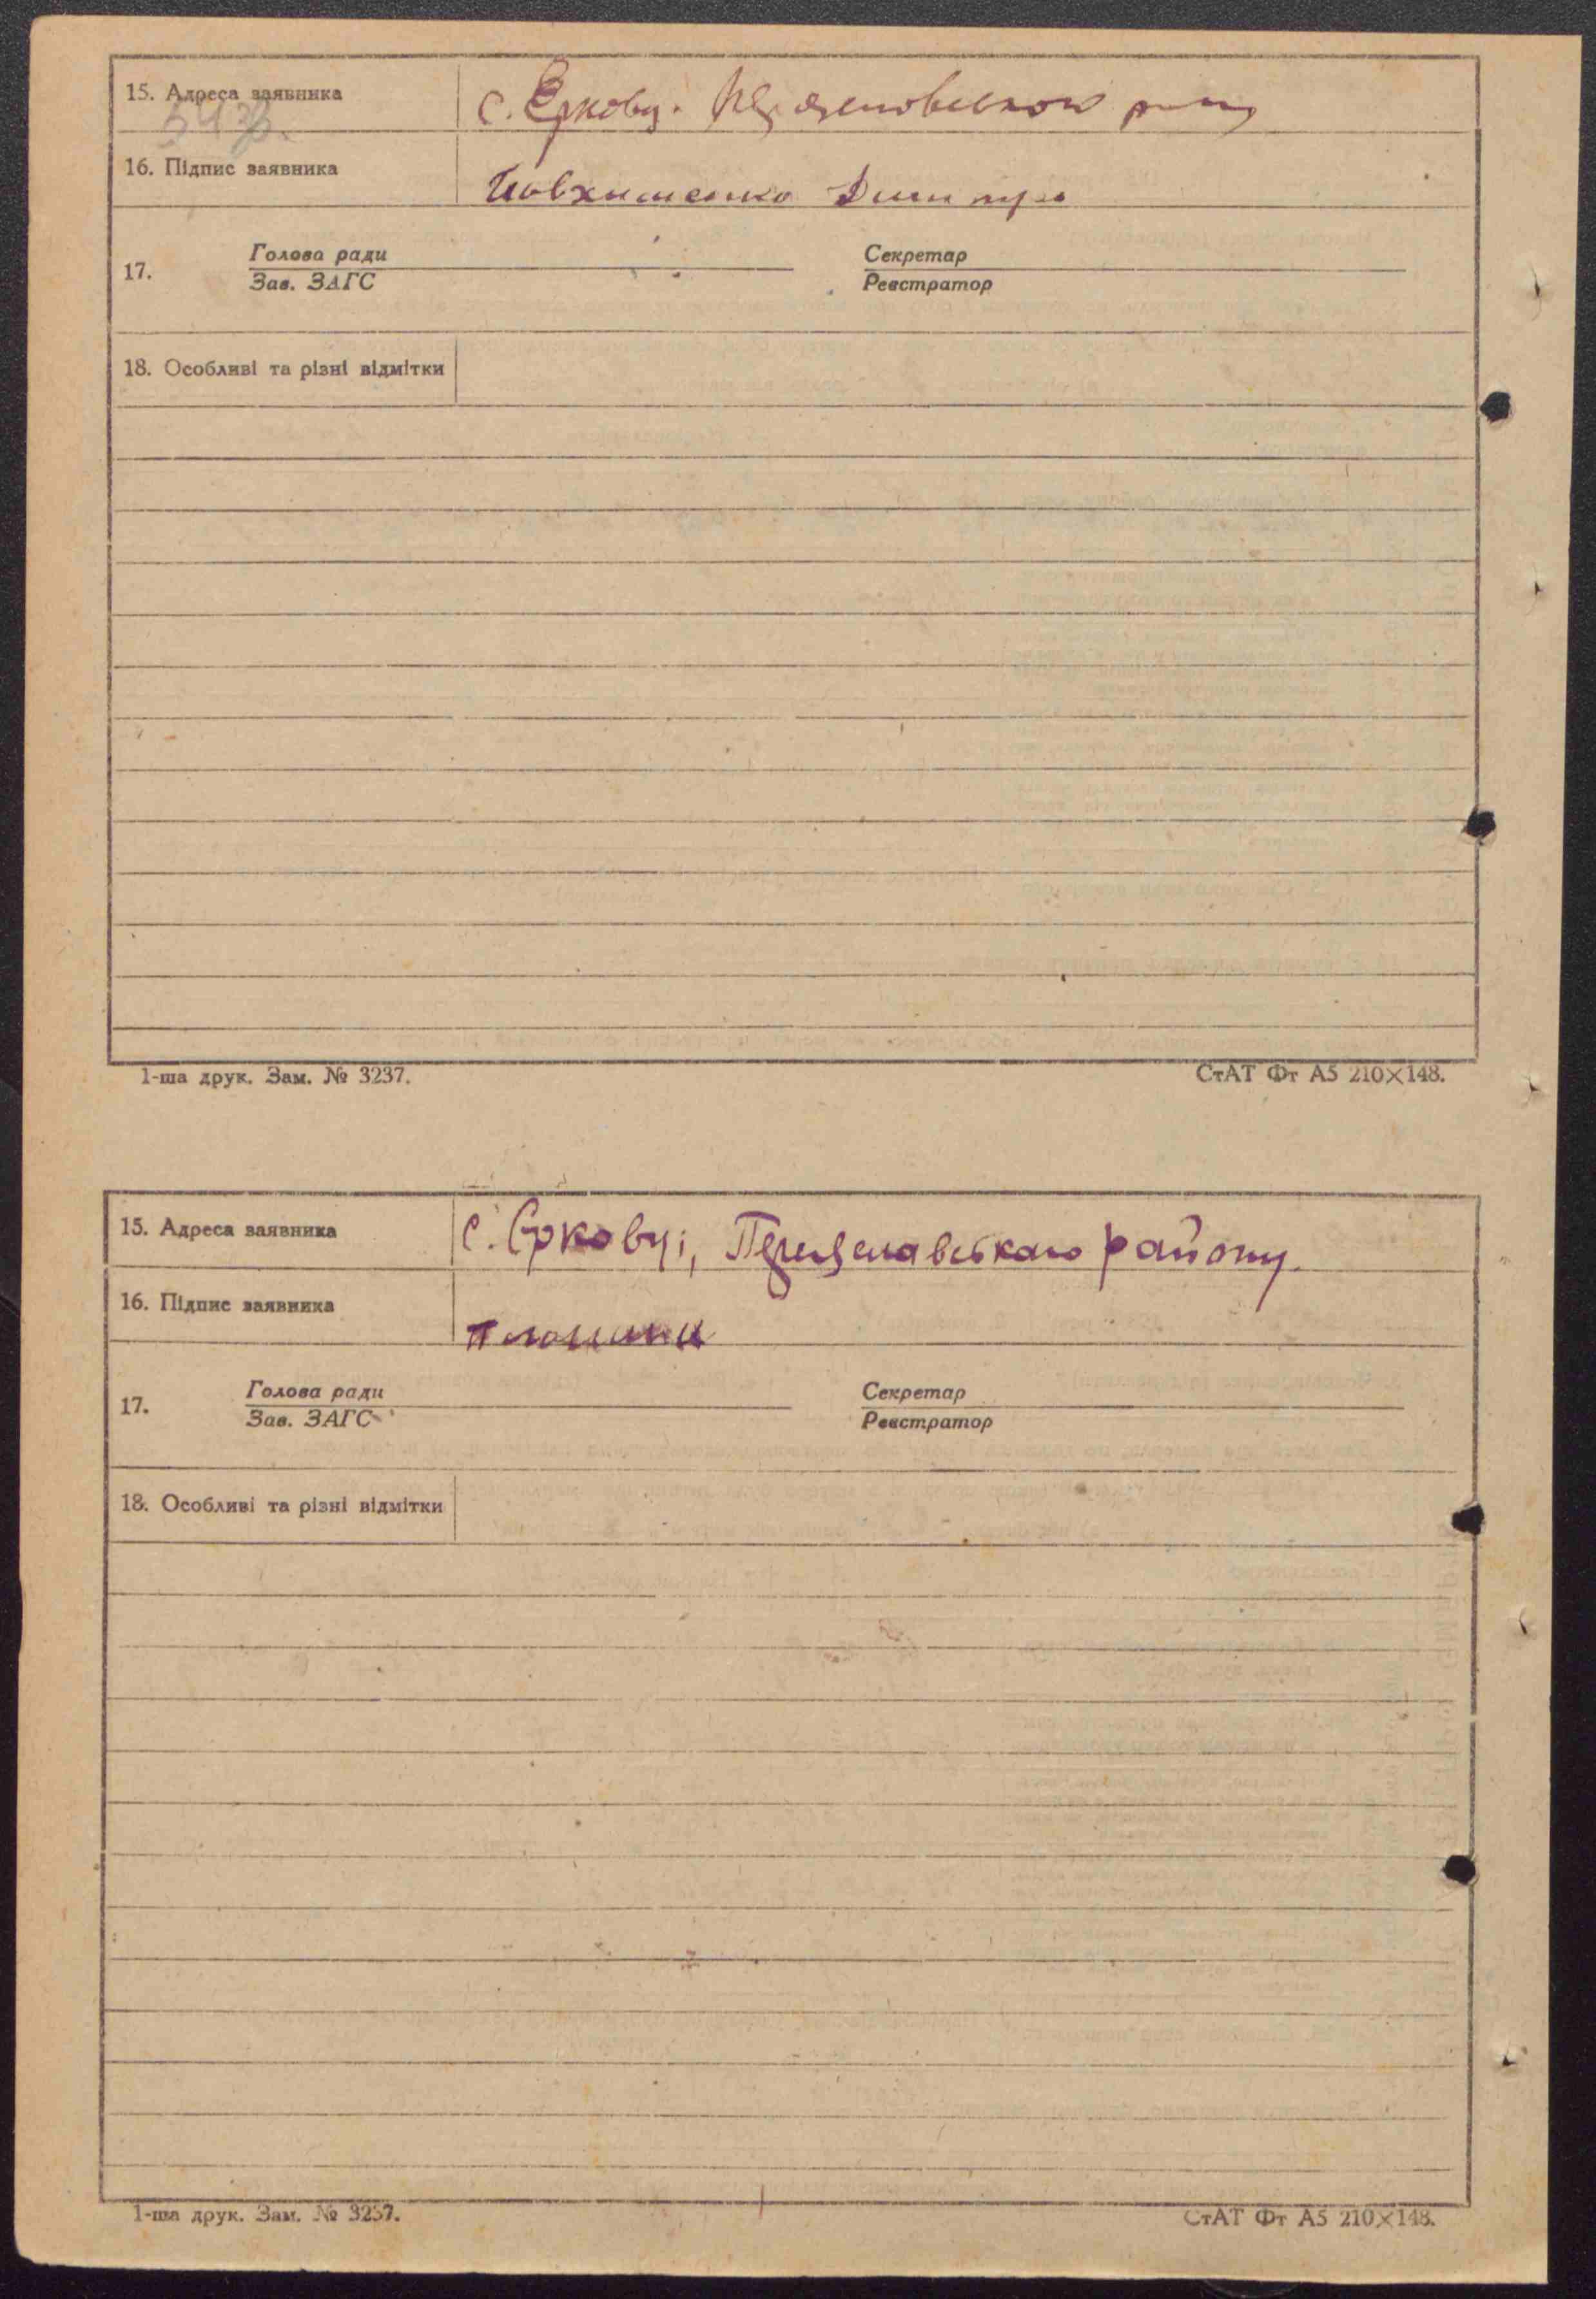 15. Адреса заявника с. Єрковц.
16. Підпис заявника Дмитро
Голова ради Секретар
17.
Зав. ЗАГС Реєстратор
18. Особливі та різні відмітки
1-ша друк. Зам. № 3237. СтАТ Фт А5 210×148.
15. Адреса заявника с. Єрковці, Переяславського району.
16. Підпис заявника
Голова ради Секретар
17.
Зав. ЗАГС Реєстратор
18. Особливі та різні відмітки
1-ша друк. Зам. № 3237. СтАТ Фт А5 210×148.